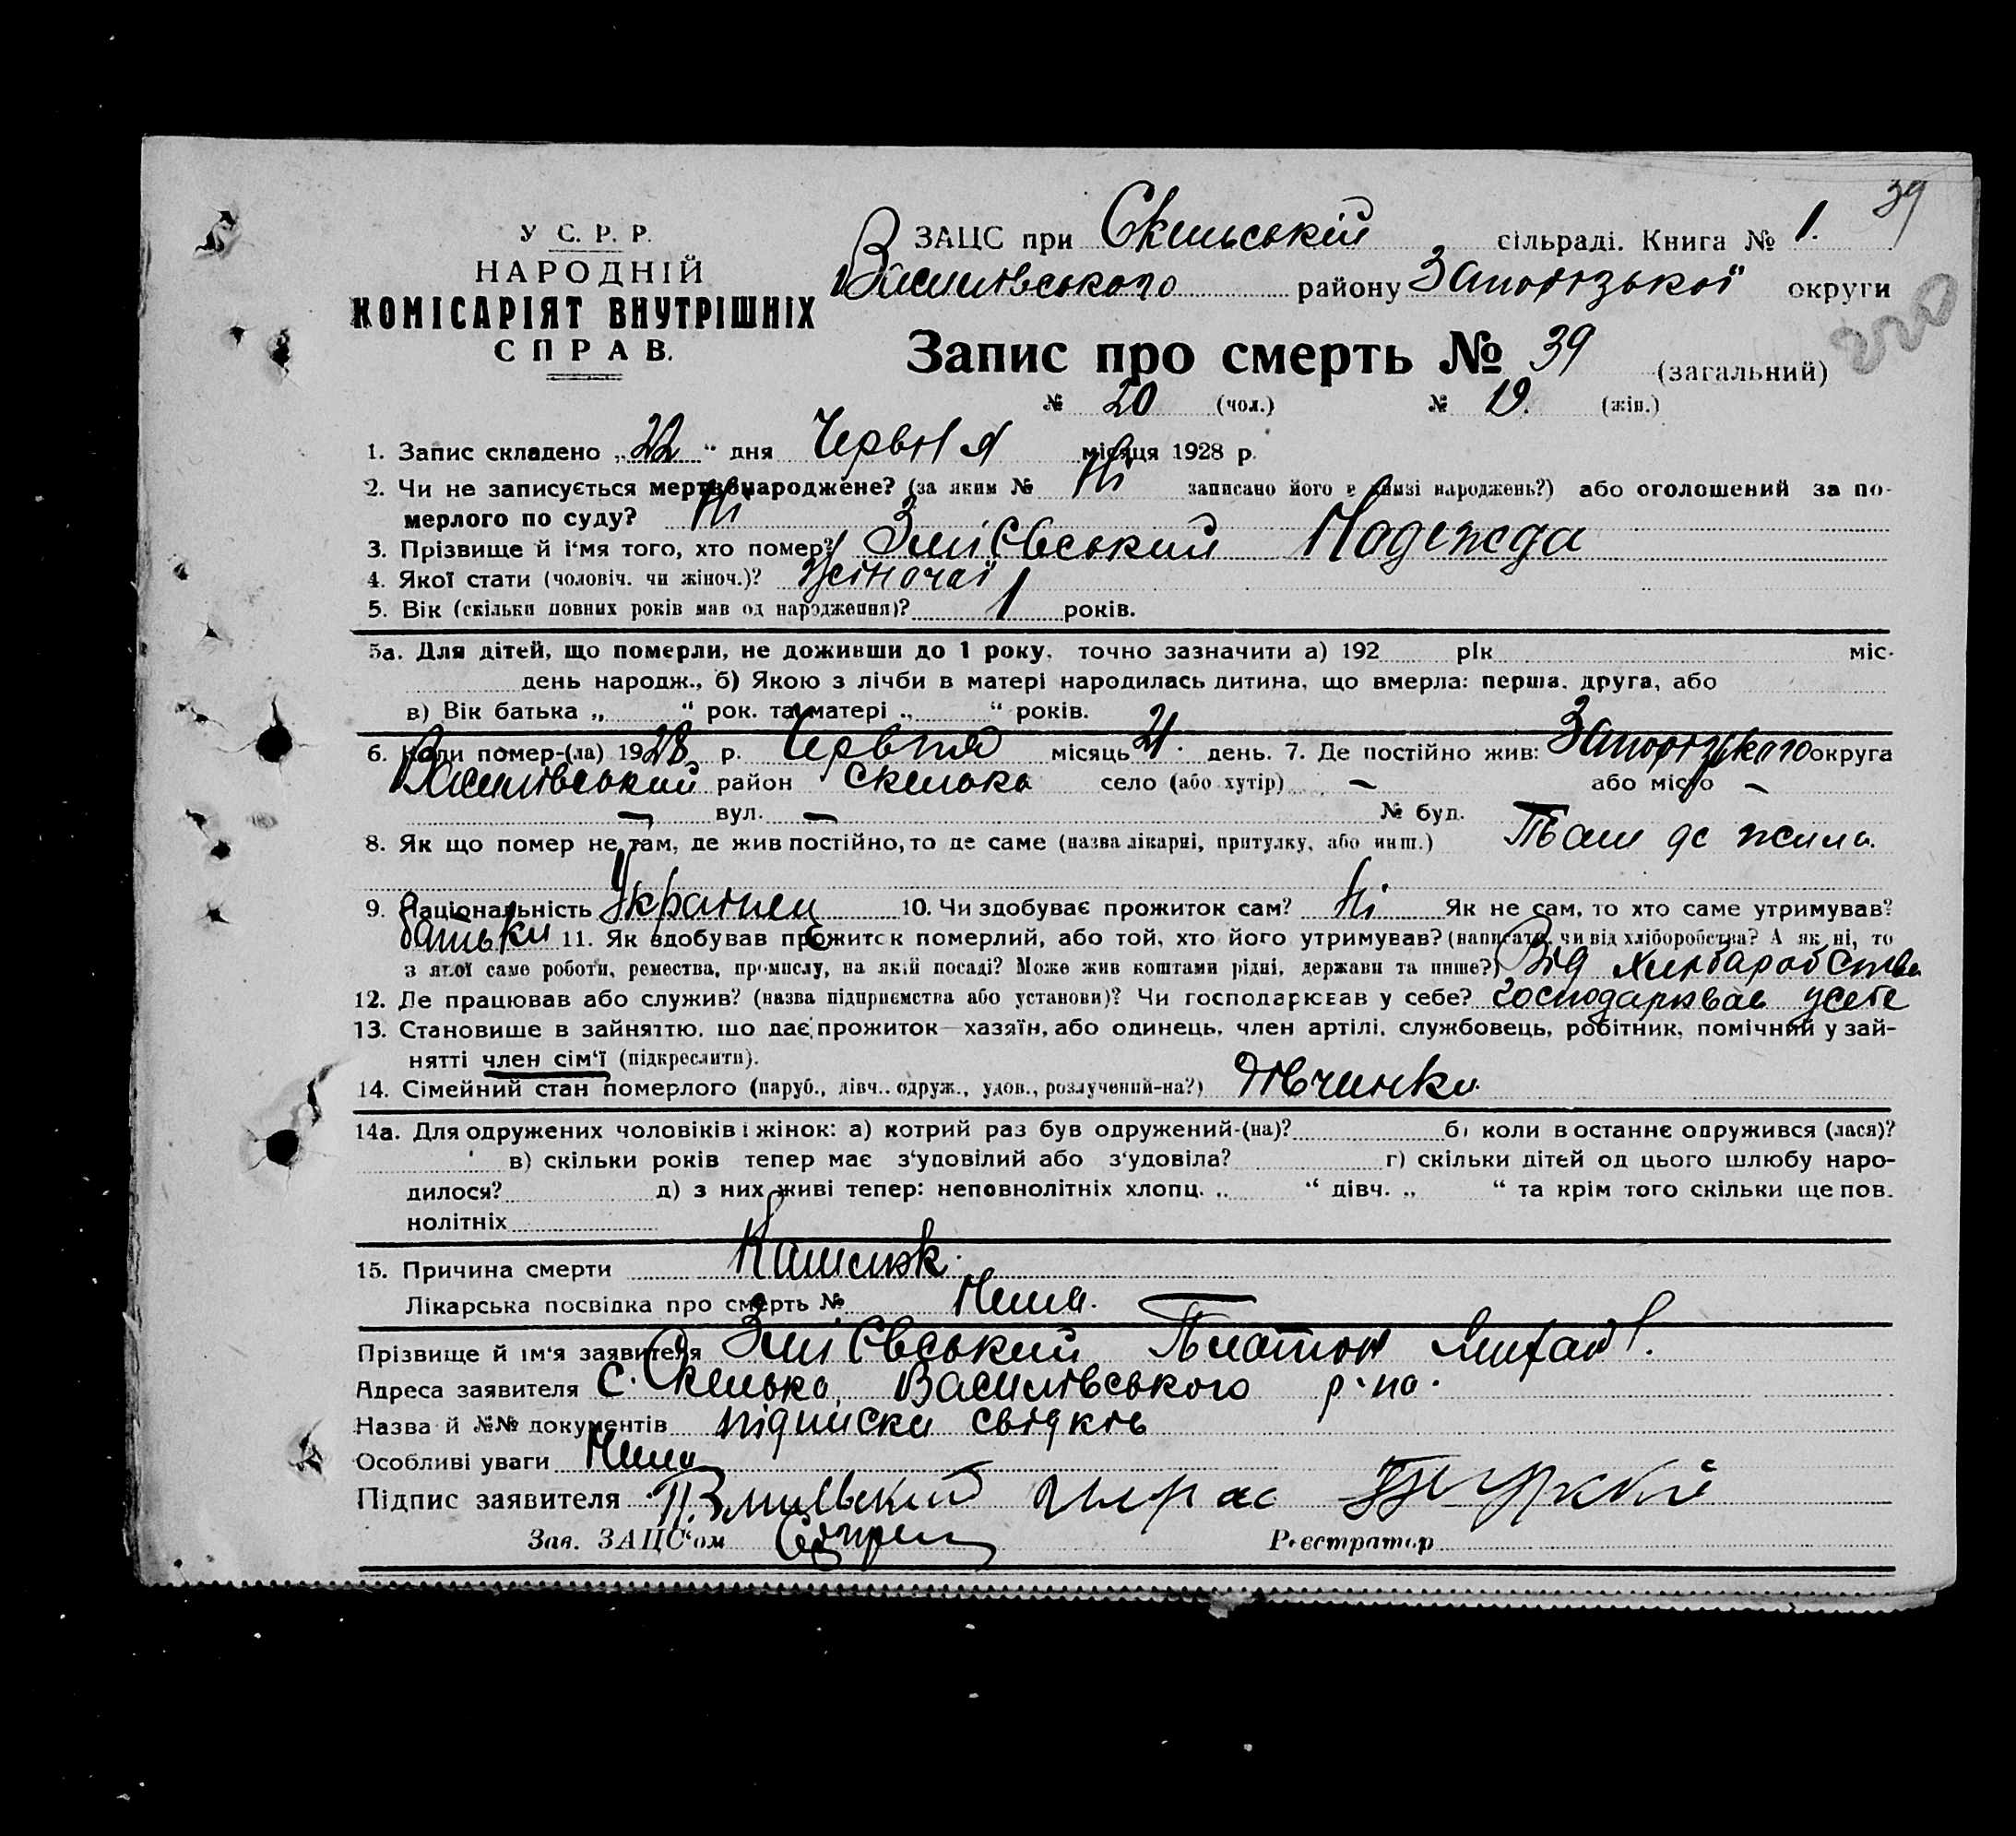 39
У С. Р. Р.
НАРОДНІЙ
КОМІСАРІЯТ ВНУТРІШНІХ
СПРАВ.
ЗАЦС при Скельській сільраді. Книга № 1.
Василівського району Запорізької округи
220
Запис про смерть № 39 (загальний)
№ 20 (чол.) № 19. (жін.)
1. Запис складено „22“ дня Червня місяця 1928 р.
2. Чи не записується мертвонароджене? (за яким № Ні записано його в книзі народжень?) або оголошений за по-
мерлого по суду? Ні
3. Прізвище й і'мя того, хто помер? Змієвський Надежда
4. Якої стати (чоловіч. чи жіноч.)? Жіночої
5. Вік (скільки повних років мав од народження)? 1 років.
5а. Для дітей, що померли, не доживши до 1 року, точно зазначити а) 192 рік міс.
день народж., б) Якою з лічби в матері народилась дитина, що вмерла: перша, друга, або
в) Вік батька „ “ рок. та матері „ “ років.
6. Коли помер-(ла) 1928 р. Червня місяць 21. день. 7. Де постійно жив: Запорізького округа
Василівський район Скелька село (або хутір) – або місто –
– вул. – № буд.
8. Як що помер не там, де жив постійно, то де саме (назва лікарні, притулку, або инш.) Там де жила.
9. Національність Украінец 10. Чи здобуває прожиток сам? Ні Як не сам, то хто саме утримував?
батьки 11. Як здобував прожиток померлий, або той, хто його утримував? (написати, чи від хліборобства? А як ні, то
з якої саме роботи, ремества, промислу, на якій посаді? Може жив коштами рідні, держави та инше?) Від хлібаробства
12. Де працював або служив? (назва підприємства або установи)? Чи господарював у себе? господарював усебе
13. Становище в зайняттю, що дає прожиток—хазяїн, або одинець, член артілі, службовець, робітник, помічний у зай-
нятті член сім'ї (підкреслити).
14. Сімейний стан померлого (паруб., дівч., одруж., удов., розлучений-на?) Дівчинка.
14а. Для одружених чоловіків і жінок: а) котрий раз був одружений-(на)? б) коли в останнє одружився (лася)?
в) скільки років тепер має з'удовілий або з'удовіла? г) скільки дітей од цього шлюбу наро-
дилося? д) з них живі тепер: неповнолітніх хлопц. „ “ дівч. „ “ та крім того скільки ще пов.
нолітніх
15. Причина смерти Кашлюк.
Лікарська посвідка про смерть № Нима.
Прізвище й ім'я заявителя Змієвський Платон Михай.
Адреса заявителя с. Скелька, Василівського р-на.
Назва й №№ документів підписки свідків
Особливі уваги Нима
Підпис заявителя П. Змиевский
Зав. ЗАЦС'ом Реєстратор